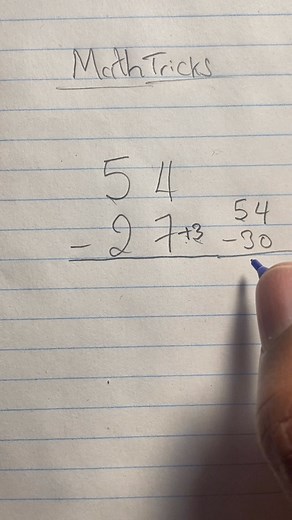 Math Tricks
54
- 27+3
54
-30